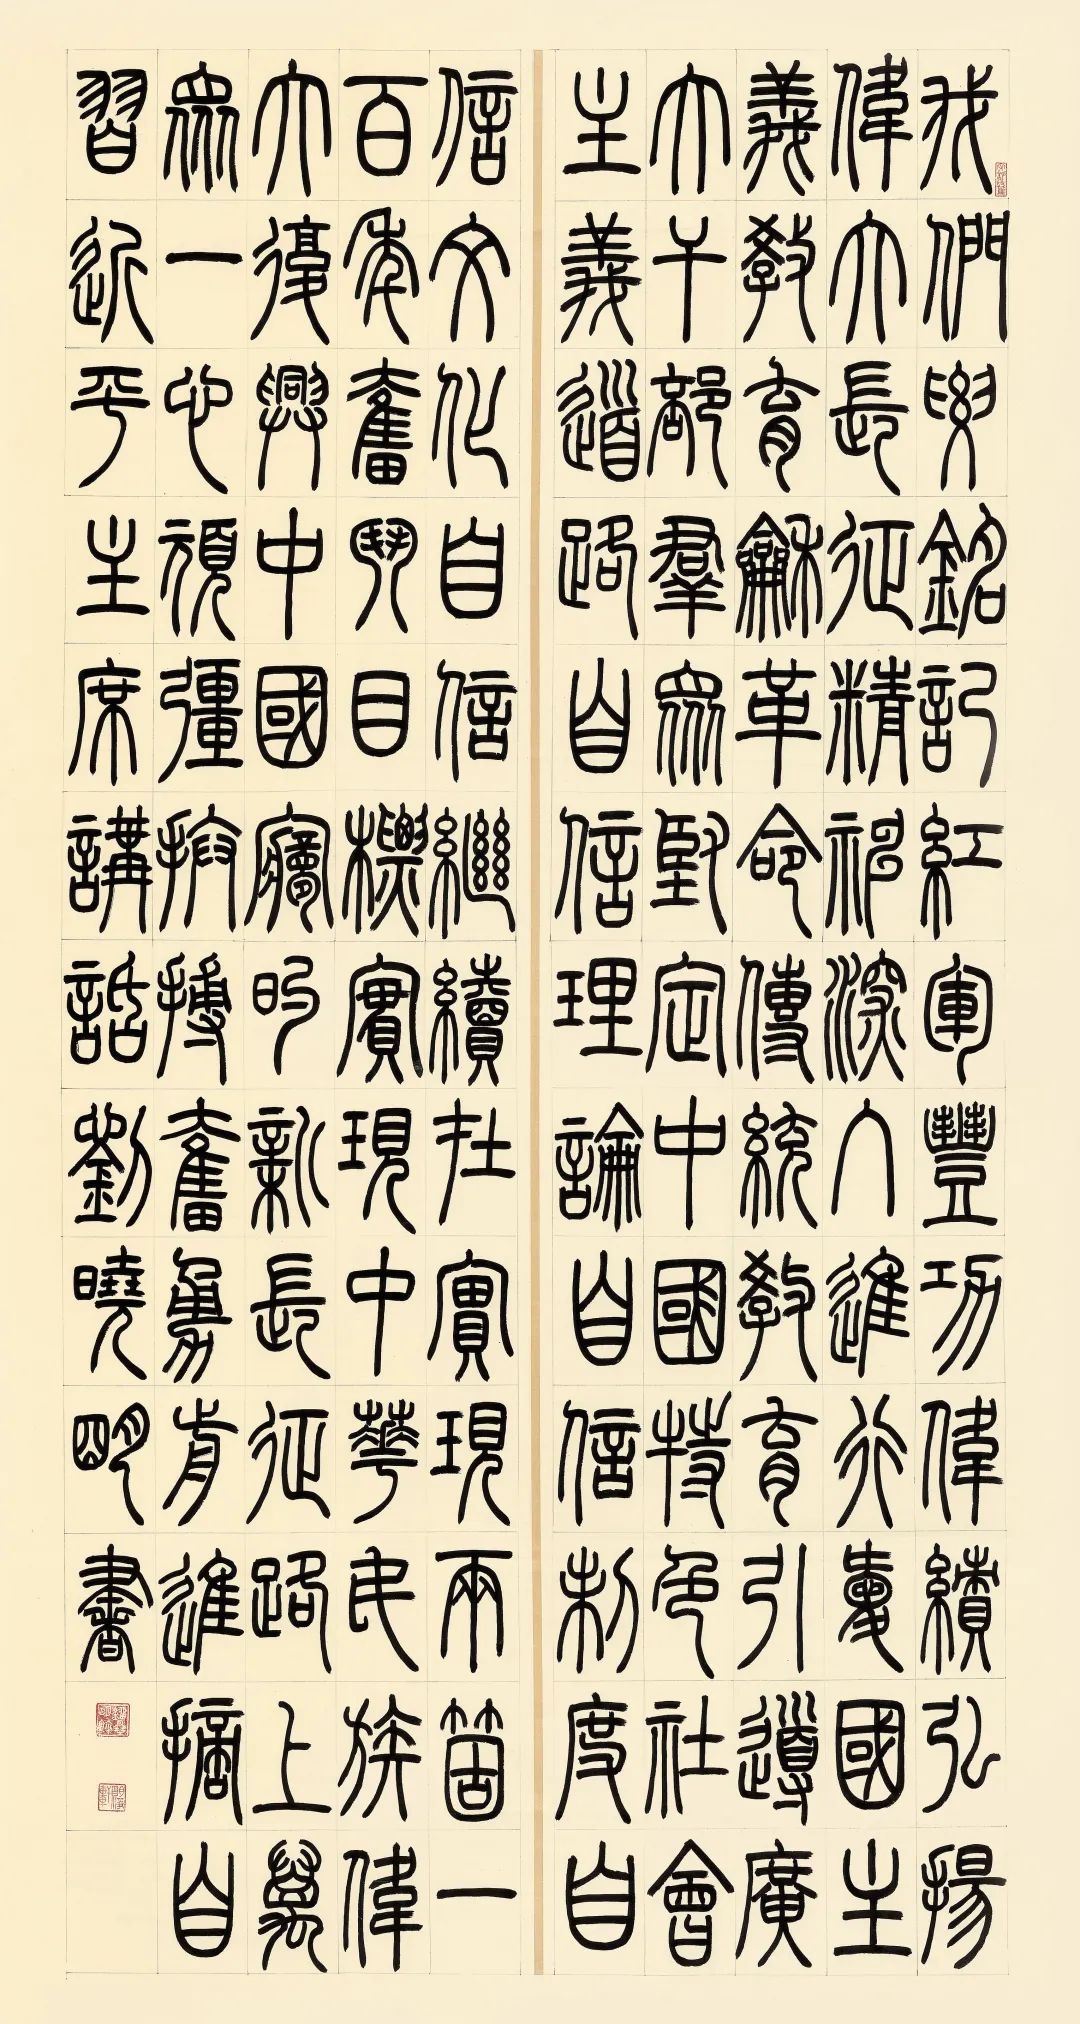 我們要銘記紅軍豐功偉績弘揚
偉大長征精神深入進行愛國主
義教育龢革命傳統教育引導廣
大干部羣眾堅定中國特色社會
主義道路自信理論自信制度自
信文化自信繼續在實現兩箇一
百年奮鬥目標實現中華民族偉
大復興中國夢旳新長征路上萬
眾一心頑彊拼搏奮勇前進摘自
習近平主席講話劉曉明書